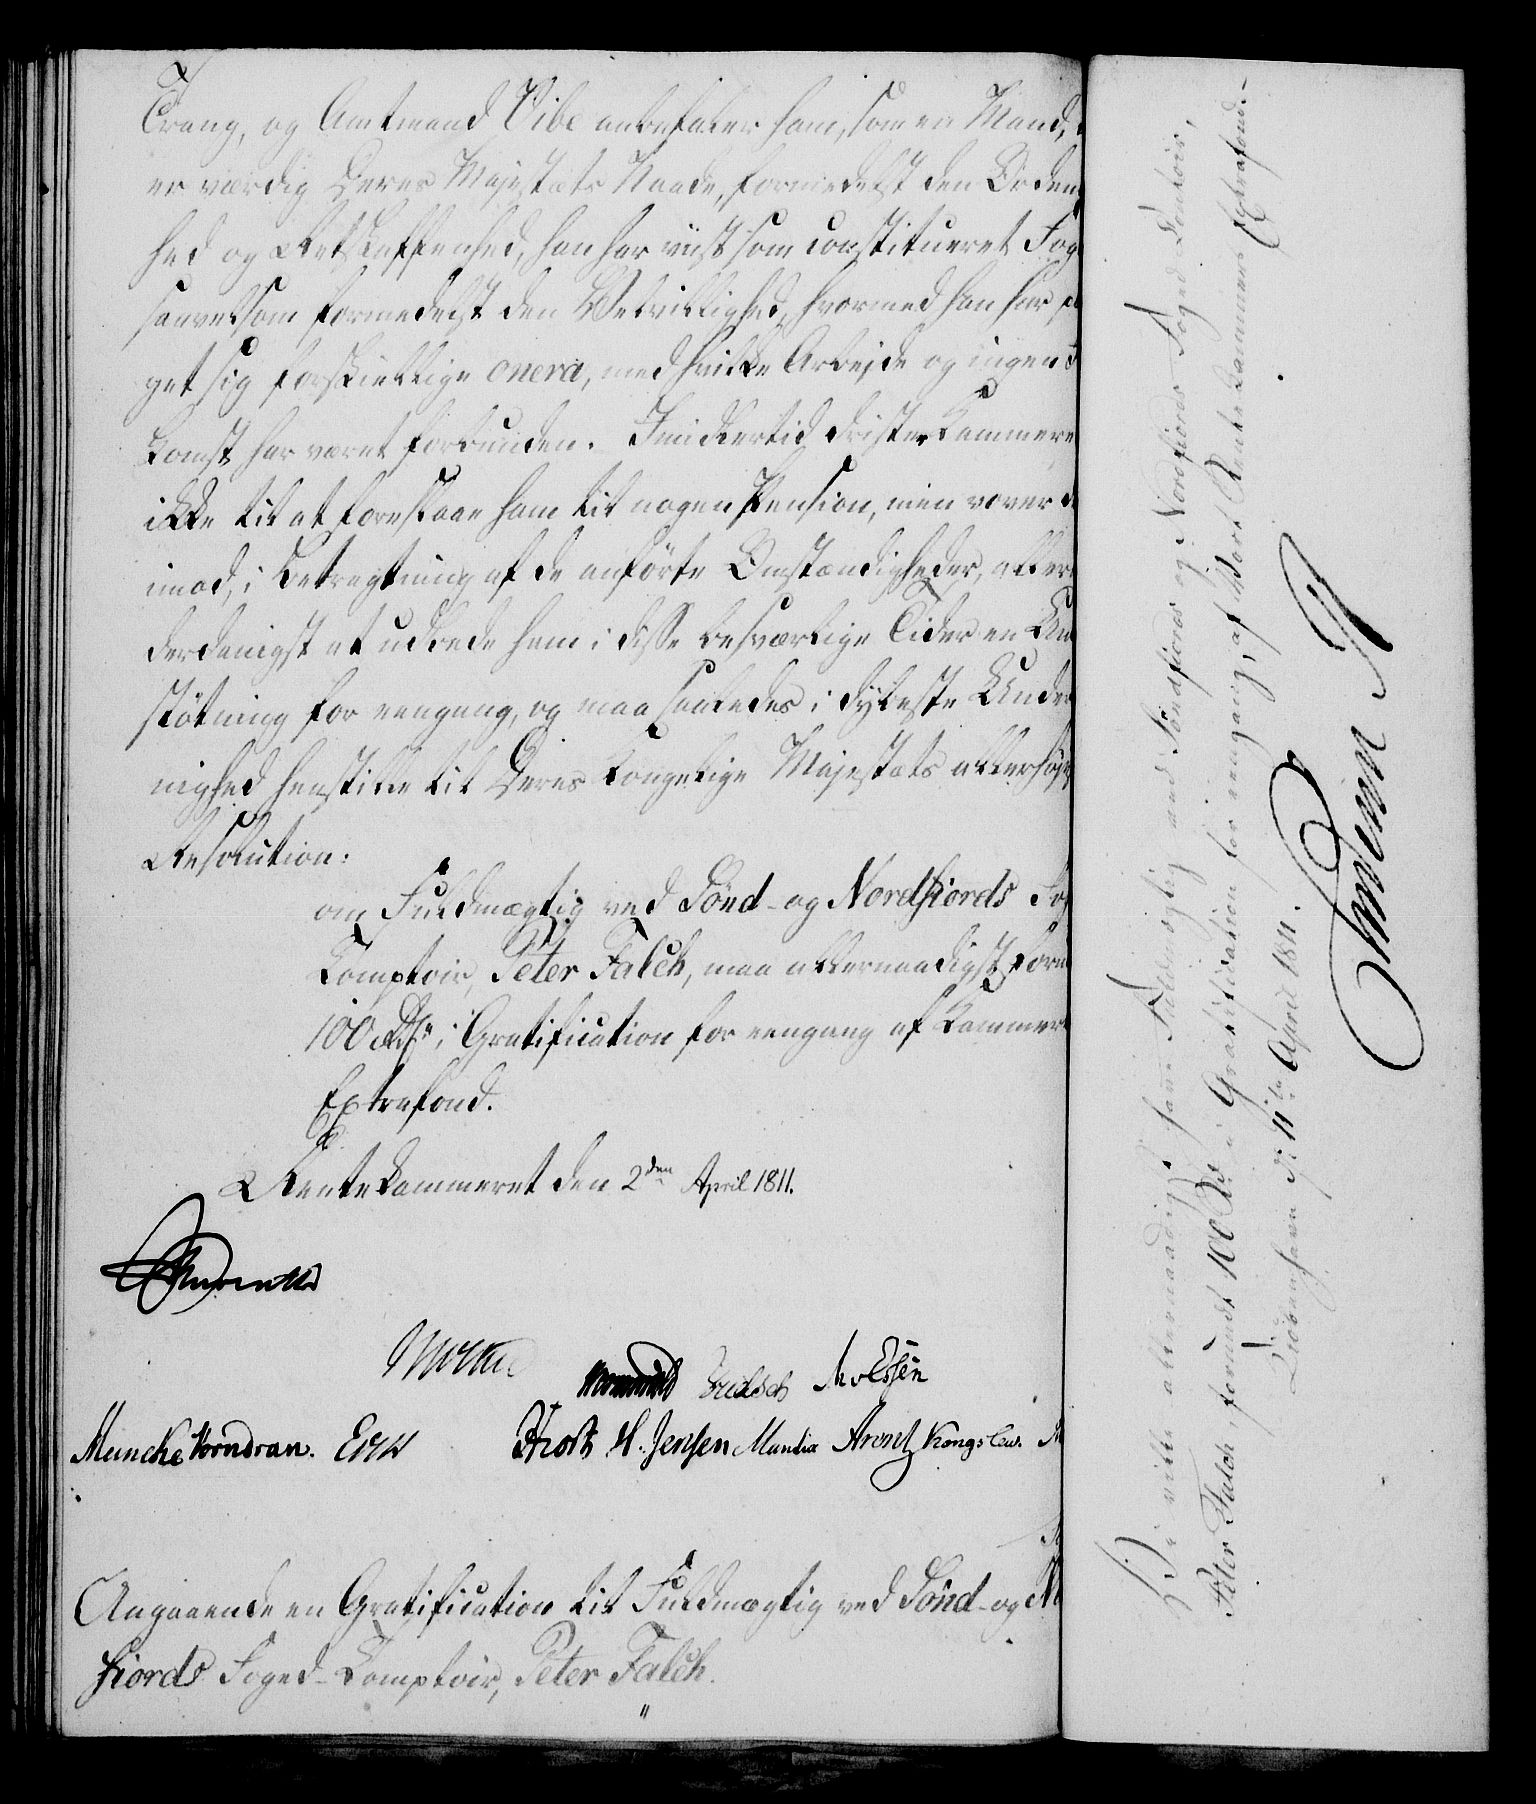 Trang, og Amtmand Vibe anbefaler ham, som en Mand,
er værdig Deres Majestæts Naade, formedelst den Orden
hed og Retskaffenhed, han har viist som constitueret Fog
saavelsom formedelst den Velvillighed, hvormed han har
get sig forskiellige onera, med hvilke Arbejde og ingen
komst har været forbunden. Imidlertid drister Kammere
ikke til at foreslaae ham til nogen Pension, men vover
imod, i Betragtning af de anførte Omstændigheder, aller
derdanigst at udbede ham i disse besværlige Tider en Un
støtning for eengang, og maa saaledes i dybeste Under
nighed henstille til Deres Kongelige Majestæts allerhøj
Resolution:
om Fuldmægtig ved Sönd- og Nordfiords Fog
Comptoir, Peter Falch, maa allernaadigst for
100 Rdr i Gratification for eengang af Kammer
Extrafond.
Rentekammeret den 2den April 1811.
Wormskiold M v Essen
Muncke Vorndran.
H. Jensen Arentz Kongslew.
Angaaende en Gratification til Fuldmægtig ved Sönd- og N
fiords Foged-Comptoir, Peter Falch.
Vi ville allernaadigst have Fuldmægtig ved Söndfiords og Nordfiords Foged Contoir,
Peter Falch forundt 100 Rd i Gratification for eengang, af Vort Rentekammers Extrafond.
Kiøbenhavn d. 11te April 1811.
Frederik R